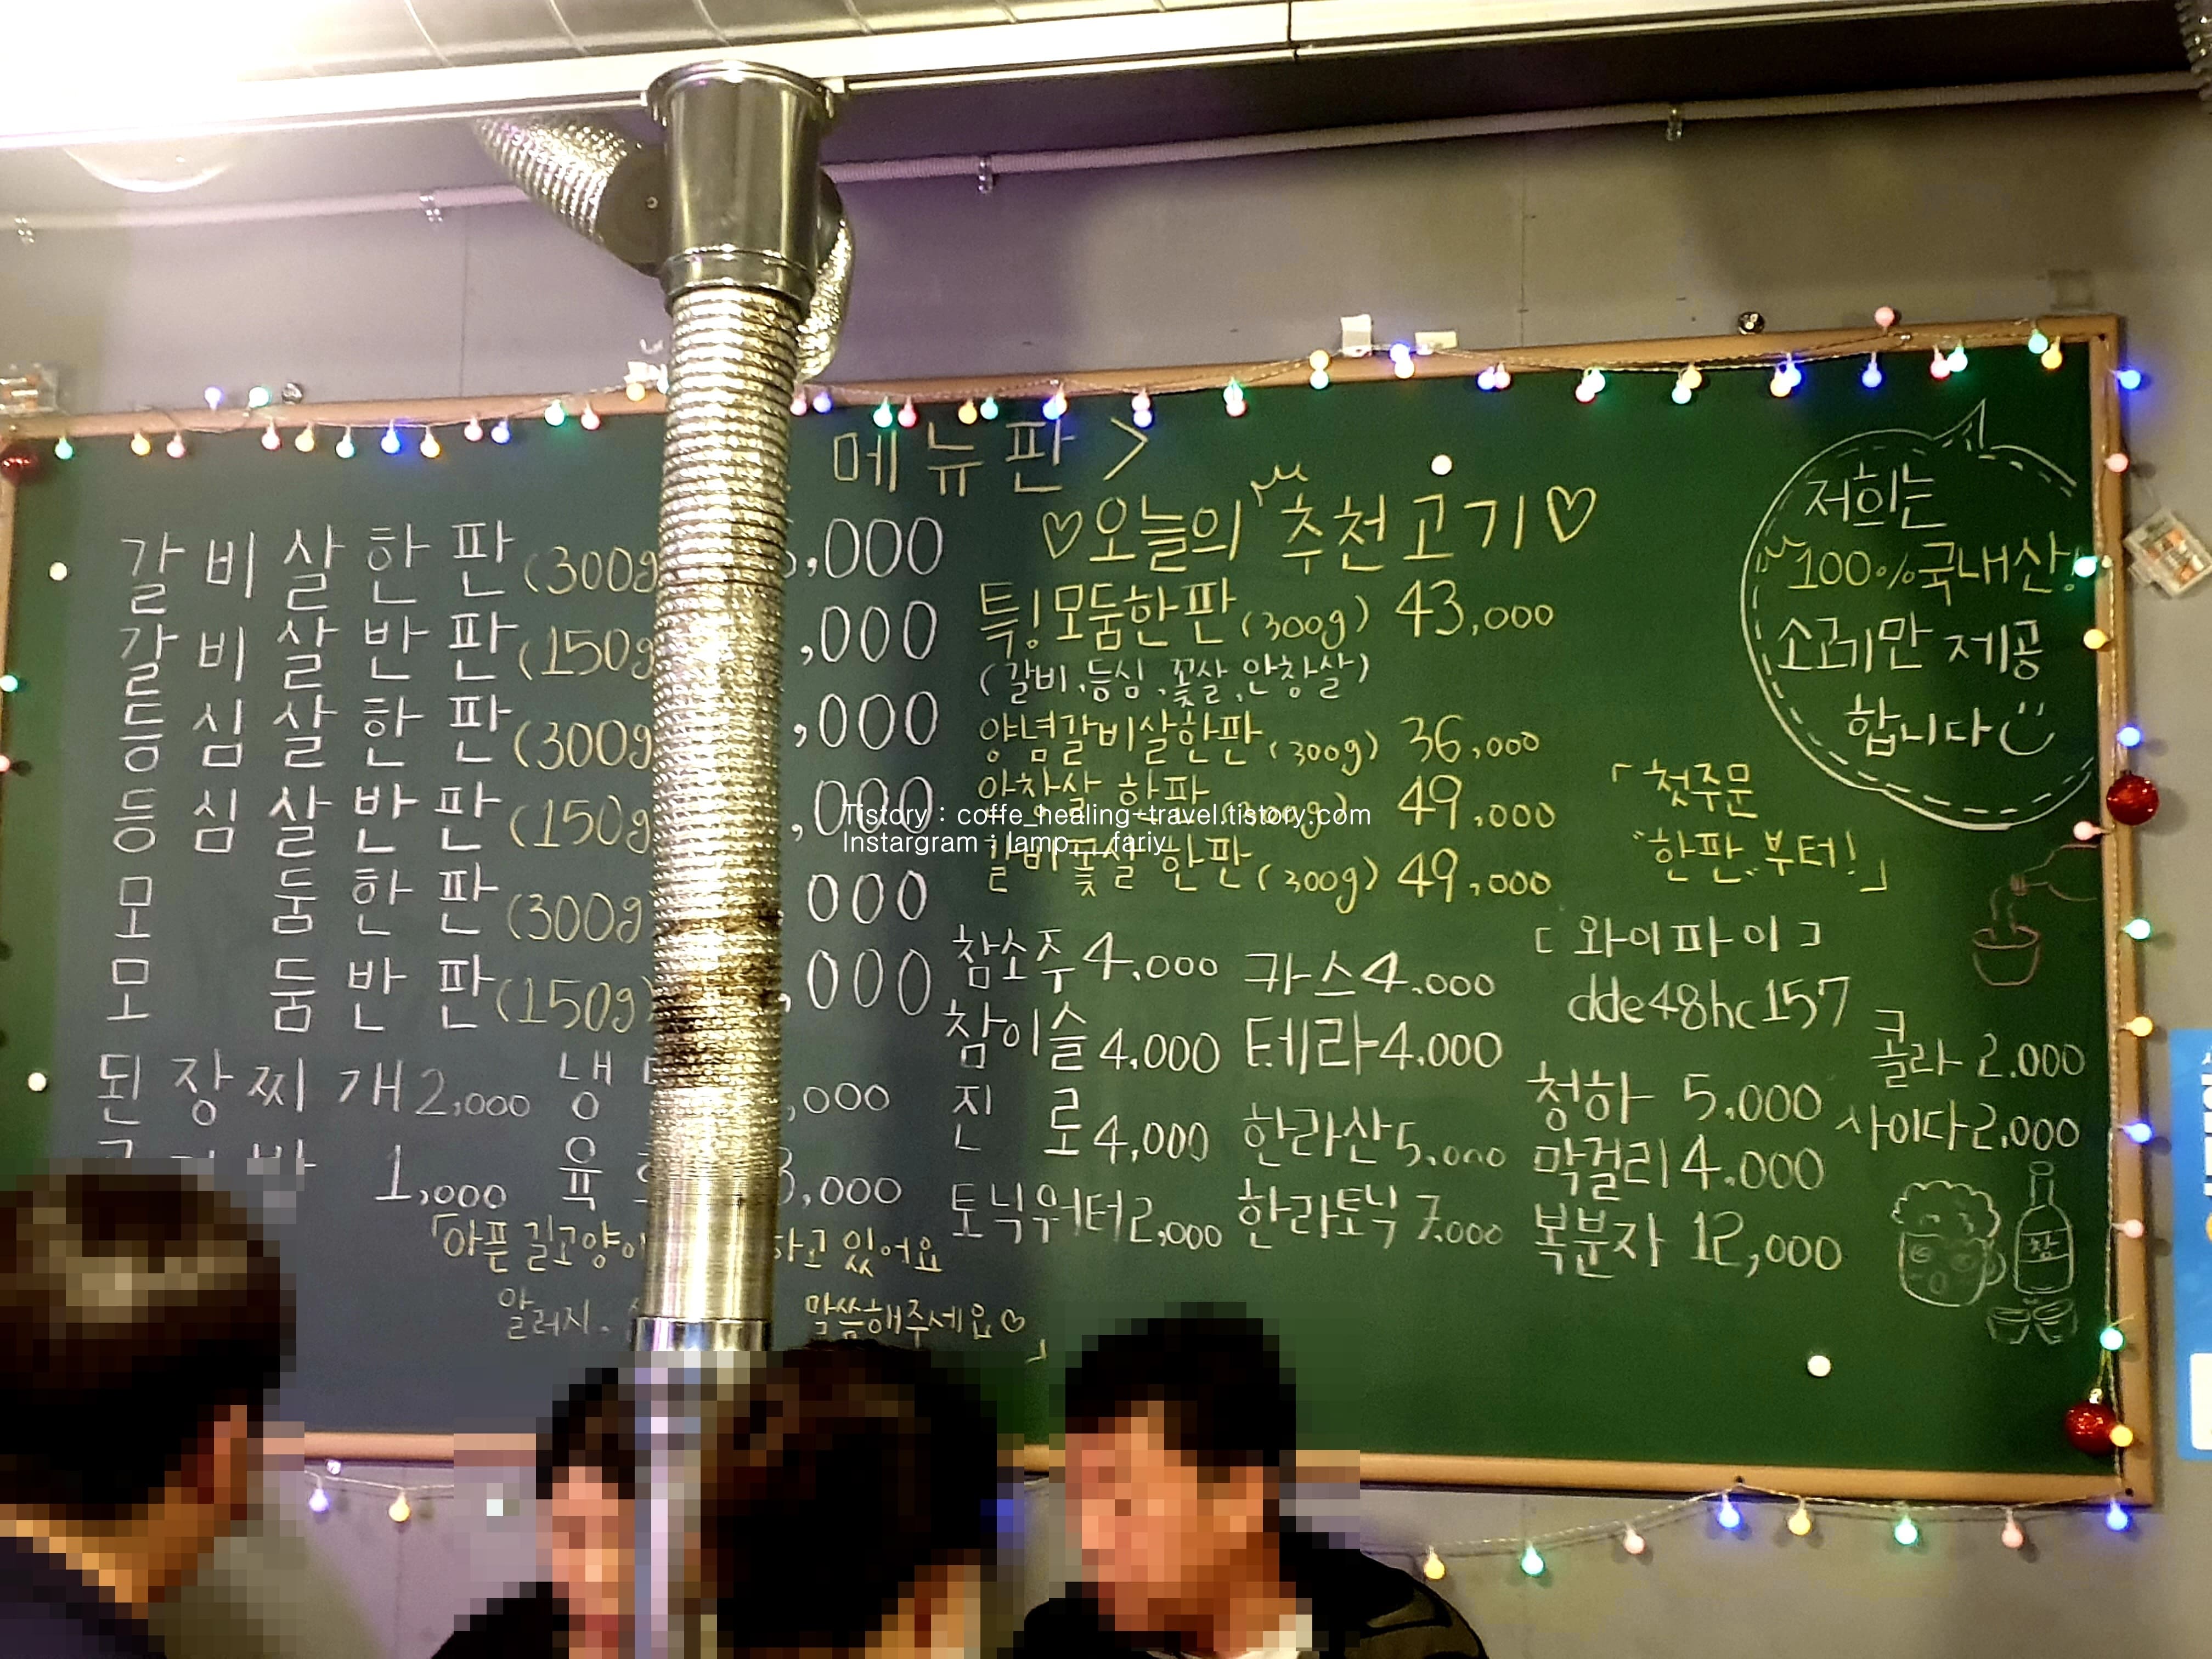 메뉴판 >
갈비살한판 (300g ,000
갈비살반판 (150g ,000
등심살한판 (300g ,000
등심살반판 (150g ,000
모둠한판 (300g 000
모둠반판 (150g) ,000
된장찌개 2,000 냉 ,000
1,000 육 ,000
「아픈 길고양이 하고 있어요
말씀해주세요♡」
♡오늘의 추천고기♡
특! 모둠한판 (300g) 43,000
(갈비,등심,꽃살,안창살)
양념갈비살한판 (300g) 36,000
안창살 한판 (300g) 49,000
갈비꽃살 한판 (300g) 49,000
참소주 4,000 카스 4,000
참이슬 4,000 테라 4,000
진로 4,000 한라산 5,000
토닉워터 2,000 한라토닉 7,000
저희는
"100% 국내산!
소고기만 제공
합니다
「첫주문
"한판"부터!」
[와이파이]
dde48hc157
청하 5,000
막걸리 4,000
복분자 12,000
콜라 2,000
사이다 2,000
참
Tistory : coffe_healing-travel.tistory.com